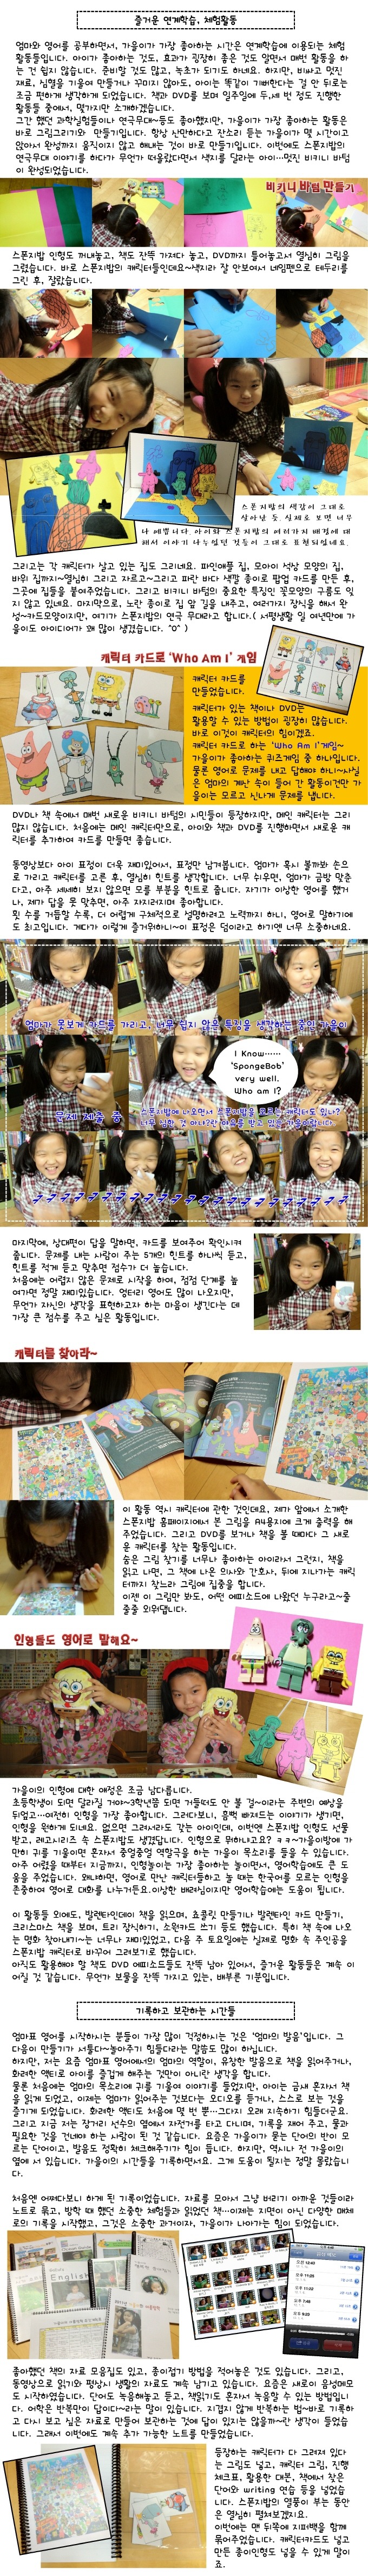 즐거운 연계학습, 체험활동
엄마와 영어를 공부하면서, 가을이가 가장 좋아하는 시간은 연계학습에 이용되는 체험
활동들입니다. 아이가 좋아하는 것도, 효과가 굉장히 좋은 것도 알면서 매번 활동을 하
는 건 쉽지 않습니다. 준비할 것도 많고, 녹초가 되기도 하네요. 하지만, 비싸고 멋진
재료, 심형을 기울여 만들거나 꾸미지 않아도, 아이는 똑같이 기뻐한다는 걸 안 뒤로는
조금 편하게 생각하게 되었습니다. 책과 DVD를 보며 일주일에 두,세 번 정도 진행한
활동들 중에서, 몇가지만 소개하겠습니다.
그간 했던 과학실험들이나 연극무대~등도 좋아했지만, 가을이가 가장 좋아하는 활동은
바로 그림그리기와 만들기입니다. 항상 산만하다고 잔소리 듣는 가을이가 몇 시간이고
앉아서 완성까지 움직이지 않고 해내는 것이 바로 만들기입니다. 이번에도 스폰지밥의
연극무대 이야기를 하다가 무언가 떠올랐다면서 색지를 달라는 아이...멋진 비키니 바텀
이 완성되었습니다.
비키니 바텀 만들기
스폰지밥 인형도 꺼내놓고, 책도 잔뜩 가져다 놓고, DVD까지 틀어놓고서 열심히 그림을
그렸습니다. 바로 스폰지밥의 캐릭터들인데요~색지라 잘 안보여서 네임펜으로 테두리를
그린 후, 잘랐습니다.
스폰지밥의 색감이 그대로
살아난 듯, 실제로 보면 너무
나 예쁩니다. 아이와 스폰지밥의 여러가지 배경에 대
해서 이야기 나누었던 것들이 그대로 표현되었네요.
그리고는 각 캐릭터가 살고 있는 집도 그리네요. 파인애플 집, 모아이 석상 모양의 집,
바위 집까지~열심히 그리고 자르고~그리고 파란 바다 색깔 종이로 팝업 카드를 만든 후,
그곳에 집들을 붙여주었습니다. 그리고 비키니 바텀의 중요한 특징인 꽃모양의 구름도 잊
지 않고 있네요. 마지막으로, 노란 종이로 집 앞 길을 내주고, 여러가지 장식을 해서 완
성~카드모양이지만, 여기가 스폰지밥의 연극 무대라고 합니다.( 서평생활 일 여년만에 가
을이도 아이디어가 꽤 많이 생겼습니다. ^0^ )
캐릭터 카드로 'Who Am I' 게임
캐릭터 카드를
만들었습니다.
캐릭터가 있는 책이나 DVD는
활용할 수 있는 방법이 굉장히 많습니다.
바로 이것이 캐릭터의 힘이겠죠.
캐릭터 카드로 하는 'Who Am I'게임~
가을이가 좋아하는 퀴즈게임 중 하나입니다.
물론 영어로 문제를 내고 답해야 하니~사실
은 엄마의 계산 속이 들어 간 활동이건만 가
을이는 모르고 신나게 문제를 냅니다.
DVD나 책 속에서 매번 새로운 비키니 바텀의 시민들이 등장하지만, 메인 캐릭터는 그리
많지 않습니다. 처음에는 메인 캐릭터만으로, 아이와 책과 DVD를 진행하면서 새로운 캐
릭터를 추가하여 카드를 만들면 좋습니다.
동영상보다 아이 표정이 더욱 재미있어서, 표정만 남겨봅니다. 엄마가 혹시 볼까봐 손으
로 가리고 캐릭터를 고른 후, 열심히 힌트를 생각합니다. 너무 쉬우면, 엄마가 금방 맞춘
다고, 아주 세세히 보지 않으면 모를 부분을 힌트로 줍니다. 자기가 이상한 영어를 했거
나, 제가 답을 못 맞추면, 아주 자지러지며 좋아합니다.
횟 수를 거듭할 수록, 더 어렵게 구체적으로 설명하려고 노력까지 하니, 영어로 말하기에
도 최고입니다. 게다가 이렇게 즐거워하니~이 표정은 덤이라고 하기엔 너무 소중하네요.
엄마가 못보게 카드를 가리고, 너무 쉽지 않은 특징을 생각하는 중인 가을이
I Know......
'SpongeBob'
very well.
Who am I?
문제 제출 중
스폰지밥에 나오면서 스폰지밥을 모르는 캐릭터도 있나?
너무 심한 것 아냐?란 야유를 받고 있는 가을이랍니다.
ㅋㅋㅋㅋㅋㅋㅋㅋㅋㅋㅋㅋㅋㅋㅋㅋㅋㅋㅋㅋㅋ
마지막에, 상대편이 답을 말하면, 카드를 보여주어 확인시켜
줍니다. 문제를 내는 사람이 주는 5개의 힌트를 하나씩 듣고,
힌트를 적게 듣고 맞추면 점수가 더 높습니다.
처음에는 어렵지 않은 문제로 시작을 하여, 점점 단계를 높
여가면 정말 재미있습니다. 엉터리 영어도 많이 나오지만,
무언가 자신의 생각을 표현하고자 하는 마음이 생긴다는 데
가장 큰 점수를 주고 싶은 활동입니다.
캐릭터를 찾아라~
이 활동 역시 캐릭터에 관한 것인데요, 제가 앞에서 소개한
스폰지밥 홈페이지에서 본 그림을 A4용지에 크게 출력을 해
주었습니다. 그리고 DVD를 보거나 책을 볼 때마다 그 새로
운 캐릭터를 찾는 활동입니다.
숨은 그림 찾기를 너무나 좋아하는 아이라서 그런지, 책을
읽고 나면, 그 책에 나온 의사와 간호사, 뒤에 지나가는 캐릭
터까지 찾느라 그림에 집중을 합니다.
이젠 이 그림만 봐도, 어떤 에피소드에 나왔던 누구라고~줄
줄줄 외워댑니다.
인형들도 영어로 말해요~
가을이의 인형에 대한 애정은 조금 남다릅니다.
초등학생이 되면 달라질 거야~3학년쯤 되면 거들떠도 안 볼 걸~이라는 주변의 예상을
뒤엎고...여전히 인형을 가장 좋아합니다. 그러다보니, 흠뻑 빠져드는 이야기가 생기면,
인형을 원하게 되네요. 없으면 그려서라도 갖는 아이인데, 이번엔 스폰지밥 인형도 선물
받고, 레고시리즈 속 스폰지밥도 생겼답니다. 인형으로 뭐하냐고요? ㅋㅋ~가을이방에 가
만히 귀를 기울이면 혼자서 중얼중얼 역할극을 하는 가을이 목소리를 들을 수 있습니다.
아주 어렸을 때부터 지금까지, 인형놀이는 가장 좋아하는 놀이면서, 영어학습에도 큰 도
움을 주었습니다. 왜냐하면, 영어로 만난 캐릭터들하고 놀 때는 한국어를 모르는 인형을
존중하여 영어로 대화를 나누거든요.이상한 배려심이지만 영어학습에는 도움이 됩니다.
이 활동들 외에도, 발렌타인데이 책을 읽으며, 쵸콜릿 만들기나 발렌타인 카드 만들기,
크리스마스 책을 보며, 트리 장식하기, 소원카드 쓰기 등도 했습니다. 특히 책 속에 나오
는 명화 찾아내기~는 너무나 재미있었고, 다음 주 토요일에는 실제로 명화 속 주인공을
스폰지밥 캐릭터로 바꾸어 그려보기로 했습니다.
아직도 활용해야 할 책도 DVD 에피소드들도 잔뜩 남아 있어서, 즐거운 활동들은 계속 이
어질 것 같습니다. 무언가 보물을 잔뜩 가지고 있는, 배부른 기분입니다.
기록하고 보관하는 시간들
엄마표 영어를 시작하시는 분들이 가장 많이 걱정하시는 것은 '엄마의 발음'입니다. 그
다음이 만들기가 서툴다~놀아주기 힘들다라는 말씀도 많이 하십니다.
하지만, 저는 요즘 엄마표 영어에서의 엄마의 역할이, 유창한 발음으로 책을 읽어주거나,
화려한 액티로 아이를 즐겁게 해주는 것만이 아니란 생각을 합니다.
물론 처음에는 엄마의 목소리에 귀를 기울여 이야기를 들었지만, 아이는 금새 혼자서 책
을 읽게 되었고, 이제는 엄마가 읽어주는 것보다는 오디오를 듣거나, 스스로 보는 것을
즐기게 되었습니다. 화려한 액티도 처음에 몇 번 뿐...그다지 오래 지속하기 힘들더군요.
그리고 지금 저는 장거리 선수의 옆에서 자전거를 타고 다니며, 기록을 재어 주고, 물과
필요한 것을 건네야 하는 사람이 된 것 같습니다. 요즘은 가을이가 묻는 단어의 반이 모
르는 단어이고, 발음도 정확히 체크해주기가 힘이 듭니다. 하지만, 역시나 전 가을이의
옆에 서 있습니다. 가을이의 시간들을 기록하면서요. 그게 도움이 될지는 정말 몰랐습니
다.
처음엔 어쩌다보니 하게 된 기록이었습니다. 자료를 모아서 그냥 버리기 아까운 것들이라
노트로 묶고, 방학 때 했던 소중한 체험들과 읽었던 책...이제는 지면이 아닌 다양한 매체
로의 기록을 시작했고, 그것은 소중한 과거이자, 가을이가 나아가는 힘이 되었습니다.
English
좋아했던 책의 자료 모음집도 있고, 종이접기 방법을 적어놓은 것도 있습니다. 그리고,
동영상으로 읽기와 평상시 생활의 자료도 계속 남기고 있습니다. 요즘은 새로이 음성메모
도 시작하였습니다. 단어도 녹음해놓고 듣고, 책읽기도 혼자서 녹음할 수 있는 방법입니
다. 어학은 반복만이 답이다~라는 말이 있습니다. 지겹지 않게 반복하는 법~바로 기록하
고 다시 보고 싶은 자료로 만들어 보관하는 것에 답이 있지는 않을까~란 생각이 들었습
니다. 그래서 이번에도 계속 추가 가능한 노트를 만들었습니다.
등장하는 캐릭터가 다 그려져 있다
는 그림도 넣고, 캐릭터 그림, 진행
체크표, 활용한 대본, 책에서 찾은
단어와 writing 연습 등을 넣었습
니다. 스폰지밥의 열풍이 부는 동안
은 열심히 펼쳐보겠지요.
이번에는 맨 뒤쪽에 지퍼백을 함께
묶어주었습니다. 캐릭터카드도 넣고
만든 종이인형도 넣을 수 있게 말이
죠.